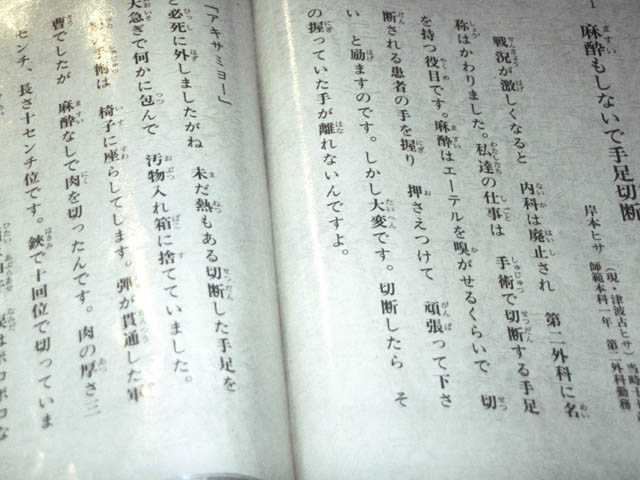 1 麻酔もしないで手足切断
岸本ヒサ (現・津波古ヒサ) 当時十
師範本科一年 第二外科勤務
戦況が激しくなると 内科は廃止され 第二外科に名
称はかわりました。私達の仕事は 手術で切断する手足
を持つ役目です。麻酔はエーテルを嗅がせるくらいで 切
断される患者の手を握り 押さえつけて 頑張って下さ
い と励ますのです。しかし大変です。切断したら そ
の握っていた手が離れないんですよ。
「アキサミヨー」
と必死に外しましたがね 未だ熱もある切断した手足を
大急ぎで何かに包んで 汚物入れ箱に捨てていました。
手術は 椅子に座らしてします。弾が貫通した軍
曹でしたが 麻酔なしで肉を切ったんです。肉の厚さ三
センチ、長さ十センチ位です。鋏で十回位で切っていま